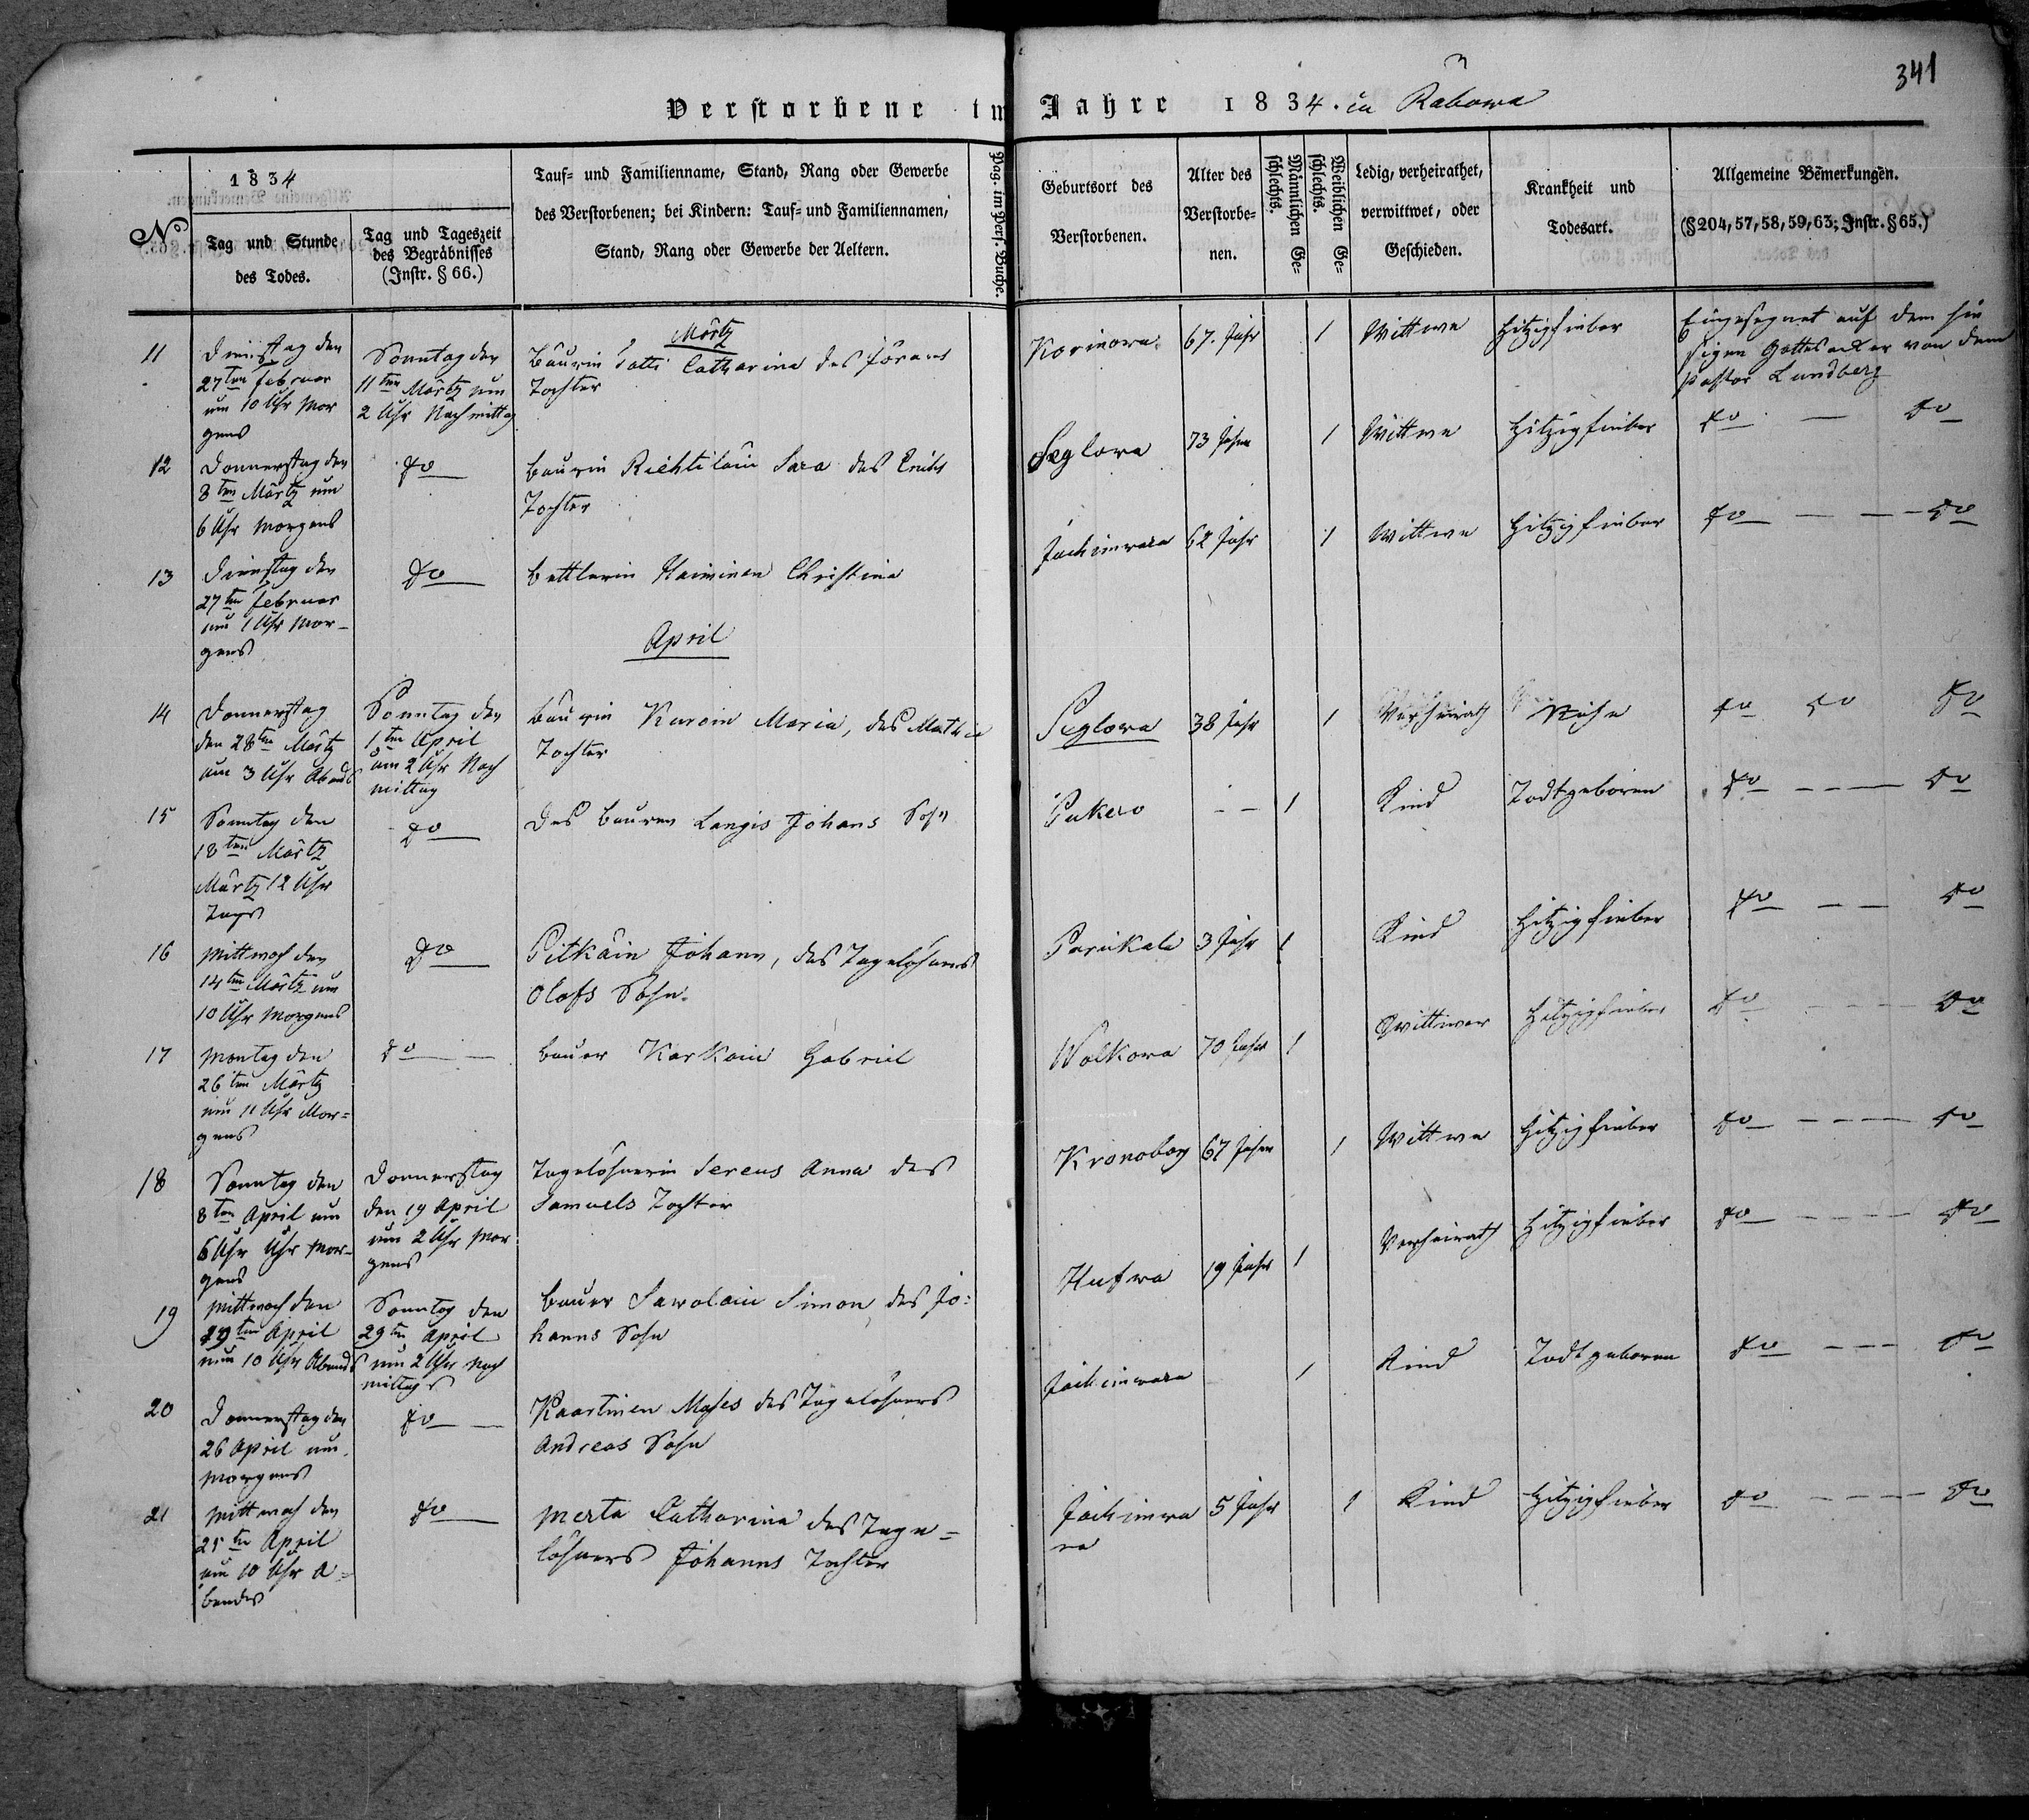 341
Verstorbene im Jahre 1834. in Rabowa
No
1834
Tag und Stunde
des Todes.
Tag und Tageszeit
des Begräbnisses
(Instr. § 66.)
Tauf- und Familienname, Stand, Rang oder Gewerbe
des Verstorbenen; bei Kindern: Tauf- und Familiennamen,
Stand, Rang oder Gewerbe der Aeltern.
Pag. im Pers. Buche.
Geburtsort des
Verstorbenen.
Alter des
Verstorbe-
nen.
Männlichen Ge-
schlechts.
Weiblichen Ge-
schlechts.
Ledig, verheirathet,
verwittwet, oder
Geschieden.
Krankheit und
Todesart.
Allgemeine Bemerkungen.
(§204, 57, 58, 59, 63; Instr. §65.)
März
11
Dienstag den
27ten Februar
um 10 Uhr Mor
gens
Sonntag den
11ten März um
2 Uhr Nachmittag
Bäurin Tatti Catharina des Jörans
Tochter
67. Jahr
1
Wittwe
Hitzigfieber
Eingesegnet auf dem hie
sigen Gottesacker von dem
Pastor Lundberg
12
Donnerstag den
8ten März um
6 Uhr Morgens
do
Bäurin Riehiläin Sara des Erichs
Tochter
Seglova
73 Jahr
1
Wittwe
Hitzigfieber
do — do
13
Dienstag den
27ten Februar
um 1 Uhr Mor-
gens
do
Bettlerin Haiminen Christina
Jäckimwara
62 Jahr
1
Wittwe
Hitzigfieber
do — — do
April
14
Donnerstag
den 28ten März
um 3 Uhr Abends
Sonntag den
1ten April
um 2 Uhr Nach
mittag
Bäurin Kuroin Maria, des Mathia
Tochter
Seglova
38 Jahr
1
Verheirath
do do do
15
Sonntag den
18ten März
März 12 Uhr
Tags
do
Des Bauren Langis Johans Sohn
Pukero
- -
1
Kind
Todtgeboren
do - - - do
16
Mittwoch den
14ten März um
10 Uhr Morgens
do
Pitkäin Johann, des Tagelöhners
Olofs Sohn.
Parikala
3 Jahr
1
Kind
Hitzigfieber
do - - do
17
Montag den
26ten März
um 11 Uhr Mor=
gens
do
Bauer Karkain Gabriel
Wolkowa
70 Jahr
1
Wittwer
Hitzigfieber
do - - - do
18
Sonntag den
8ten April um
6 Uhr Uhr Mor-
gens
Donnerstag
den 19 April
um 2 Uhr Mor
gens
Tagelöhnerin Sereus Anna des
Samuels Tochter
Kronobog
67 Jahr
1
Wittwe
Hitzigfieber
do - - - do
19
Mittwoch den
April
um 10 Uhr Abends
Sonntag den
29ten April
um 2 Uhr Nach
mittags
Bauer Sawolain Simon, des Jo=
hanns Sohn
Hufwa
19 Jahr
1
Verheirath
Hitzigfieber
do - - - do
20
Donnerstag den
26 April um
Morgens
do
Kaartinen Moses des Tagelöhners
Andreas Sohn
Jäckimwara
1
Kind
Todtgeboren
do - - - do
21
Mittwoch den
25ten April
um 10 Uhr A=
bends
do
Merta Catharina des Tage=
löhners Johanns Tochter
Jäckimwa
ra
5 Jahr
1
Kind
Hitzigfieber
do - - - do